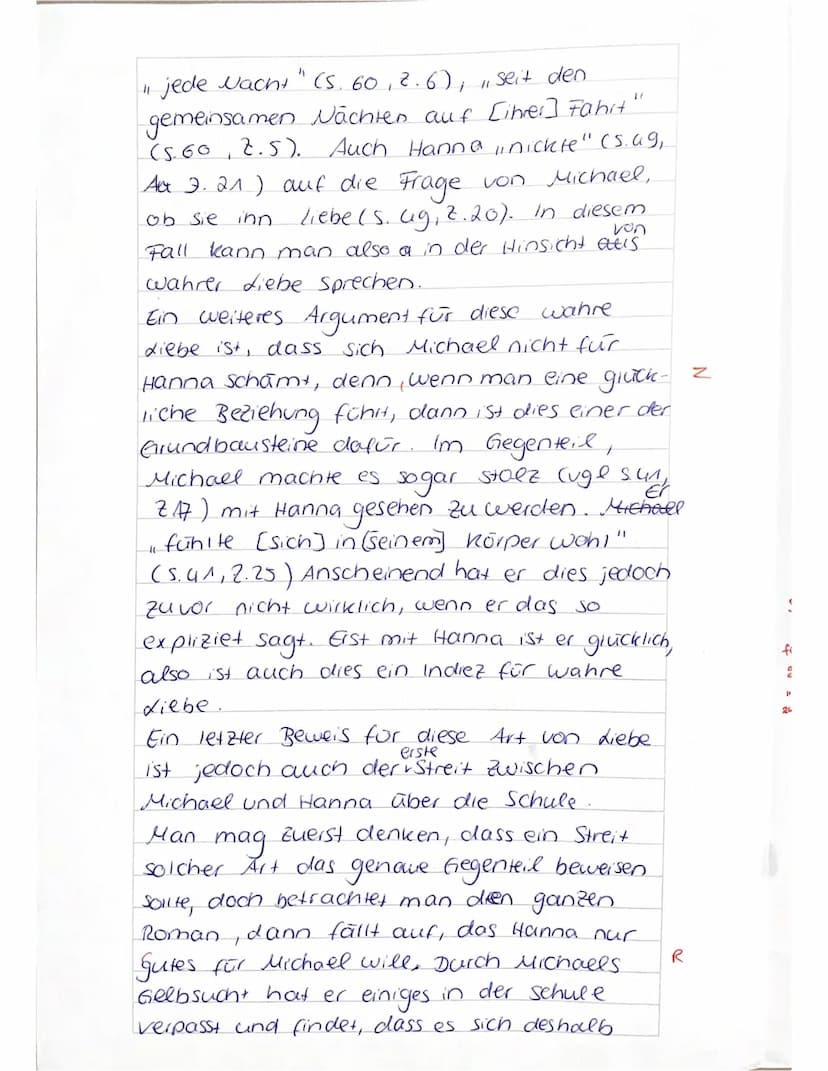 „jede Nacht" (S. 60, Z. 6), „seit den
gemeinsamen Nächten auf [ihrer] Fahrt"
(S. 60, Z. 5). Auch Hanna „nickte" (S. 49,
Z. 21) auf die Frage von Michael,
ob sie ihn liebe (S. 49, Z. 20). In diesem
von
Fall kann man also in der Hinsicht
wahrer Liebe sprechen.
Ein weiteres Argument für diese wahre
Liebe ist, dass sich Michael nicht für
Hanna schämt, denn, wenn man eine glück- Z
liche Beziehung führt, dann ist dies einer der
Grundbausteine dafür. Im Gegenteil,
Michael machte es sogar stolz (vgl S 41,
Er
Z 17) mit Hanna gesehen zu werden. Michael
„fühlte [sich] in [seinem] Körper wohl"
(S. 41, Z. 25) Anscheinend hat er dies jedoch
zuvor nicht wirklich, wenn er das so
expliziet sagt. Erst mit Hanna ist er glücklich,
also ist auch dies ein Indiez für wahre
Liebe.
Ein letzter Beweis für diese Art von Liebe
erste
ist jedoch auch der Streit zwischen
Michael und Hanna über die Schule.
Man mag zuerst denken, dass ein Streit
solcher Art das genaue Gegenteil beweisen
sollte, doch betrachtet man den ganzen
Roman, dann fällt auf, das Hanna nur R
gutes für Michael will. Durch Michaels
Gelbsucht hat er einiges in der Schule
verpasst und findet, dass es sich deshalb